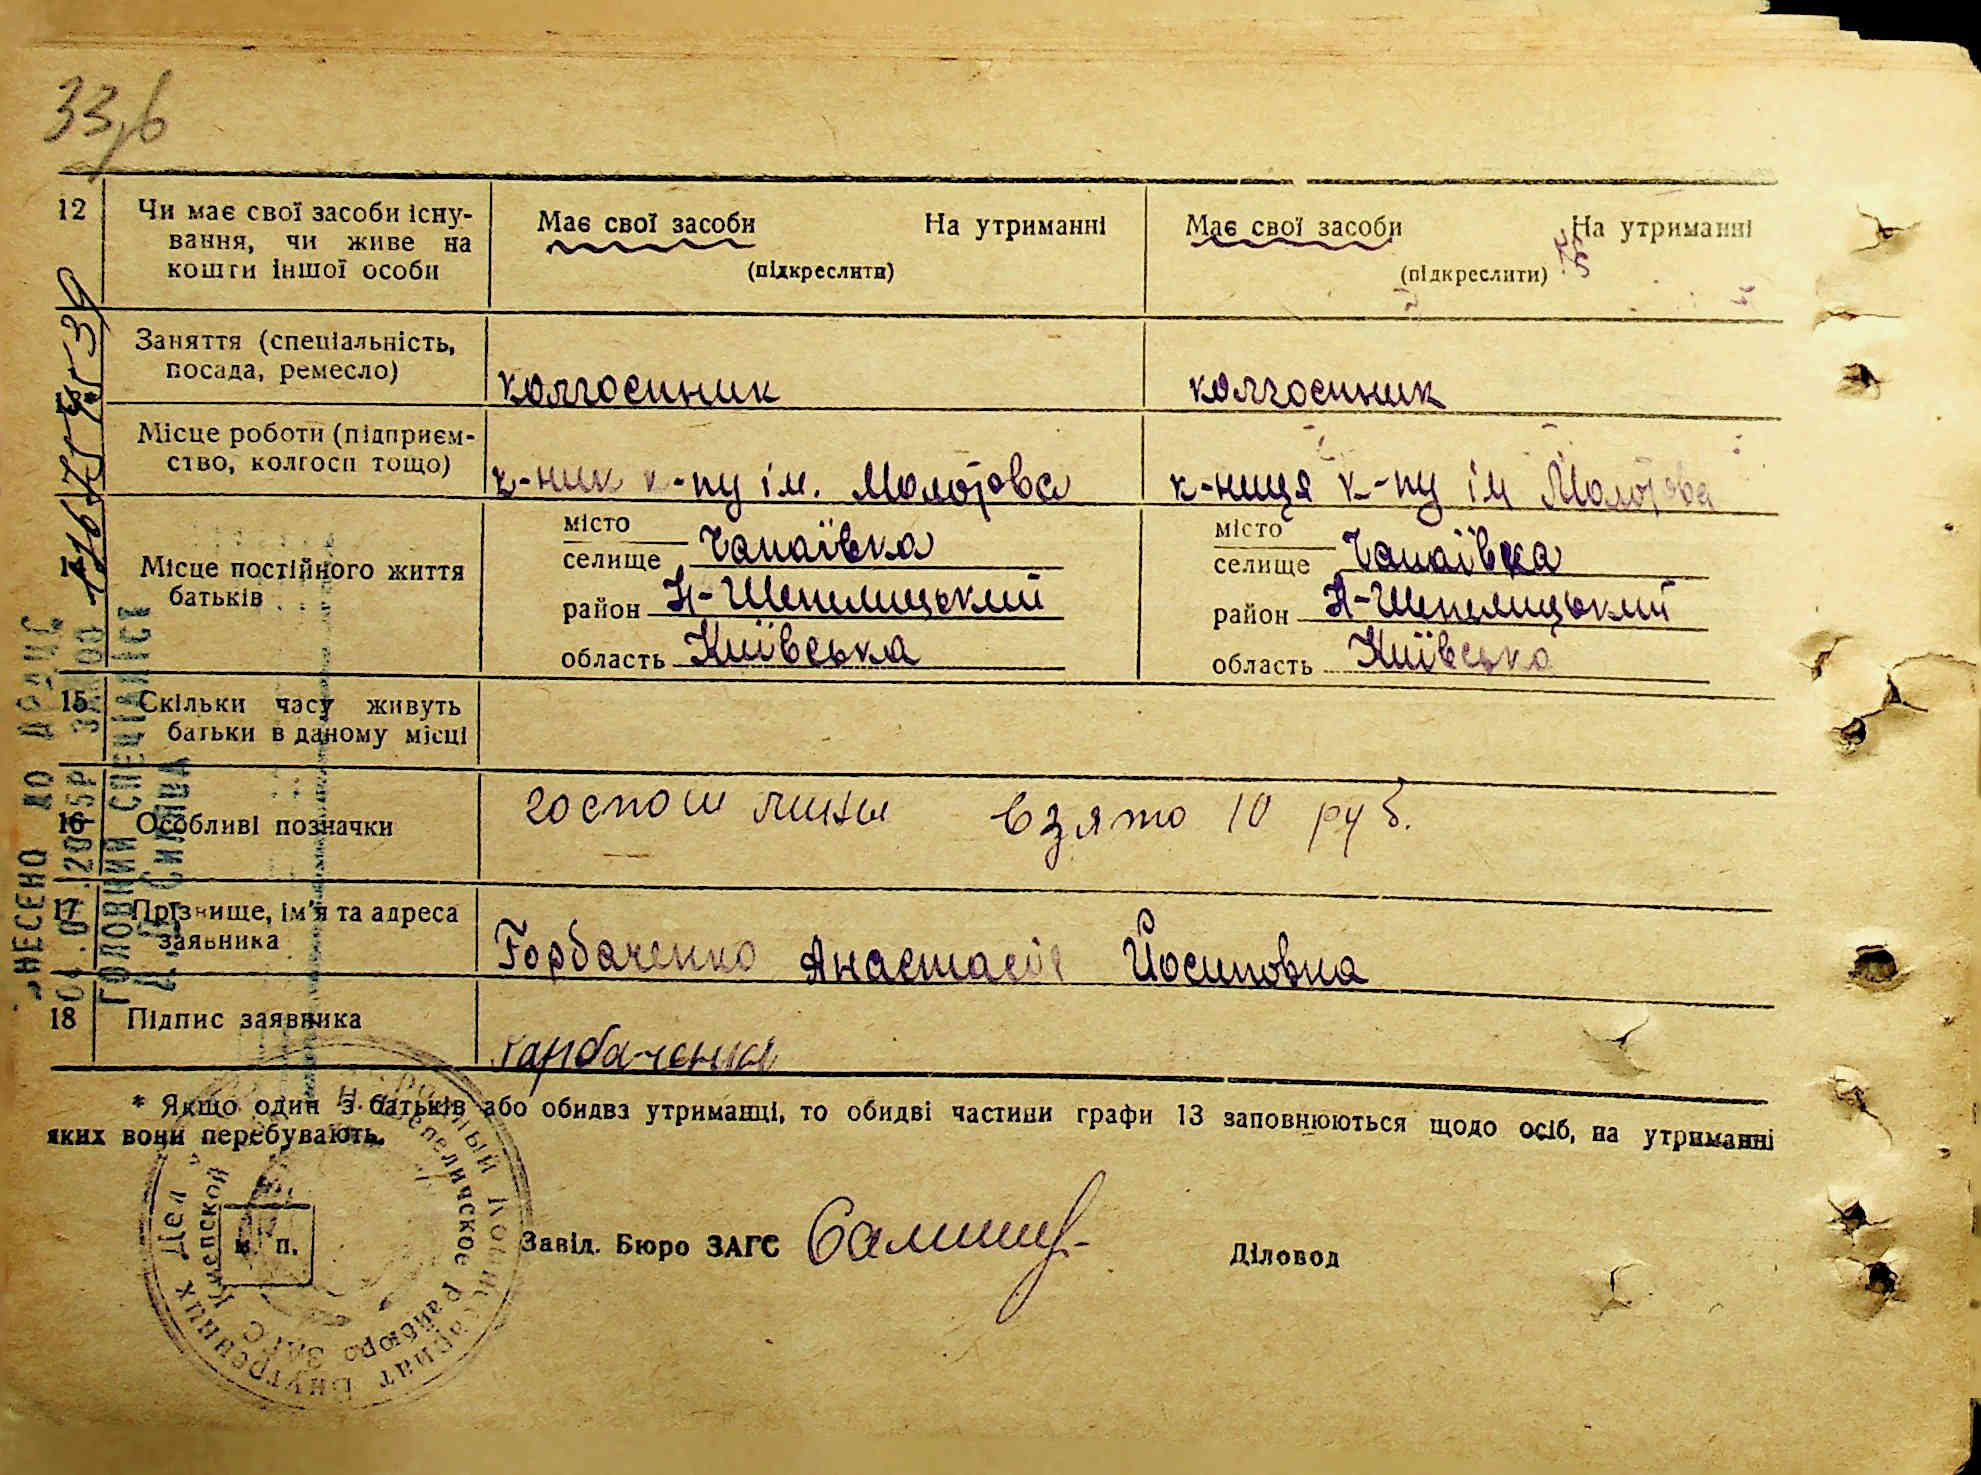 33,б
12 Чи має свої засоби існу-
вання, чи живе на
кошти іншої особи
Має свої засоби На утриманні
(підкреслити)
Має свої засоби На утриманні
(підкреслити)
Заняття (спеціальність,
посада, ремесло)
колгоспник
колгоспник
Місце роботи (підприєм-
ство, колгосп тощо)
к-ник к-пу ім. Молотова
к-ниця к-пу ім Молотова
14 Місце постійного життя
батьків
місто
селище Чапаївка
район Н-Шепелицький
область Київська
місто
селище Чапаївка
район Н-Шепелицький
область Київська
15 Скільки часу живуть
батьки в даному місці
16 Особливі позначки
госпош лини взято 10 руб.
17 Прізвище, ім'я та адреса
заявника
Горбаченко Анастасія Йосиповна
18 Підпис заявника
* Якщо один з батьків або обидва утриманці, то обидві частини графи 13 заповнюються щодо осіб, на утриманні
яких вони перебувають.
м. п.
Завід. Бюро ЗАГС
Діловод
ВНЕСЕНО ДО ДРАЦС
ГОЛОВНИЙ СПЕЦІАЛІСТ
Внутренних Дел
Киевской
Райбюро ЗАГС